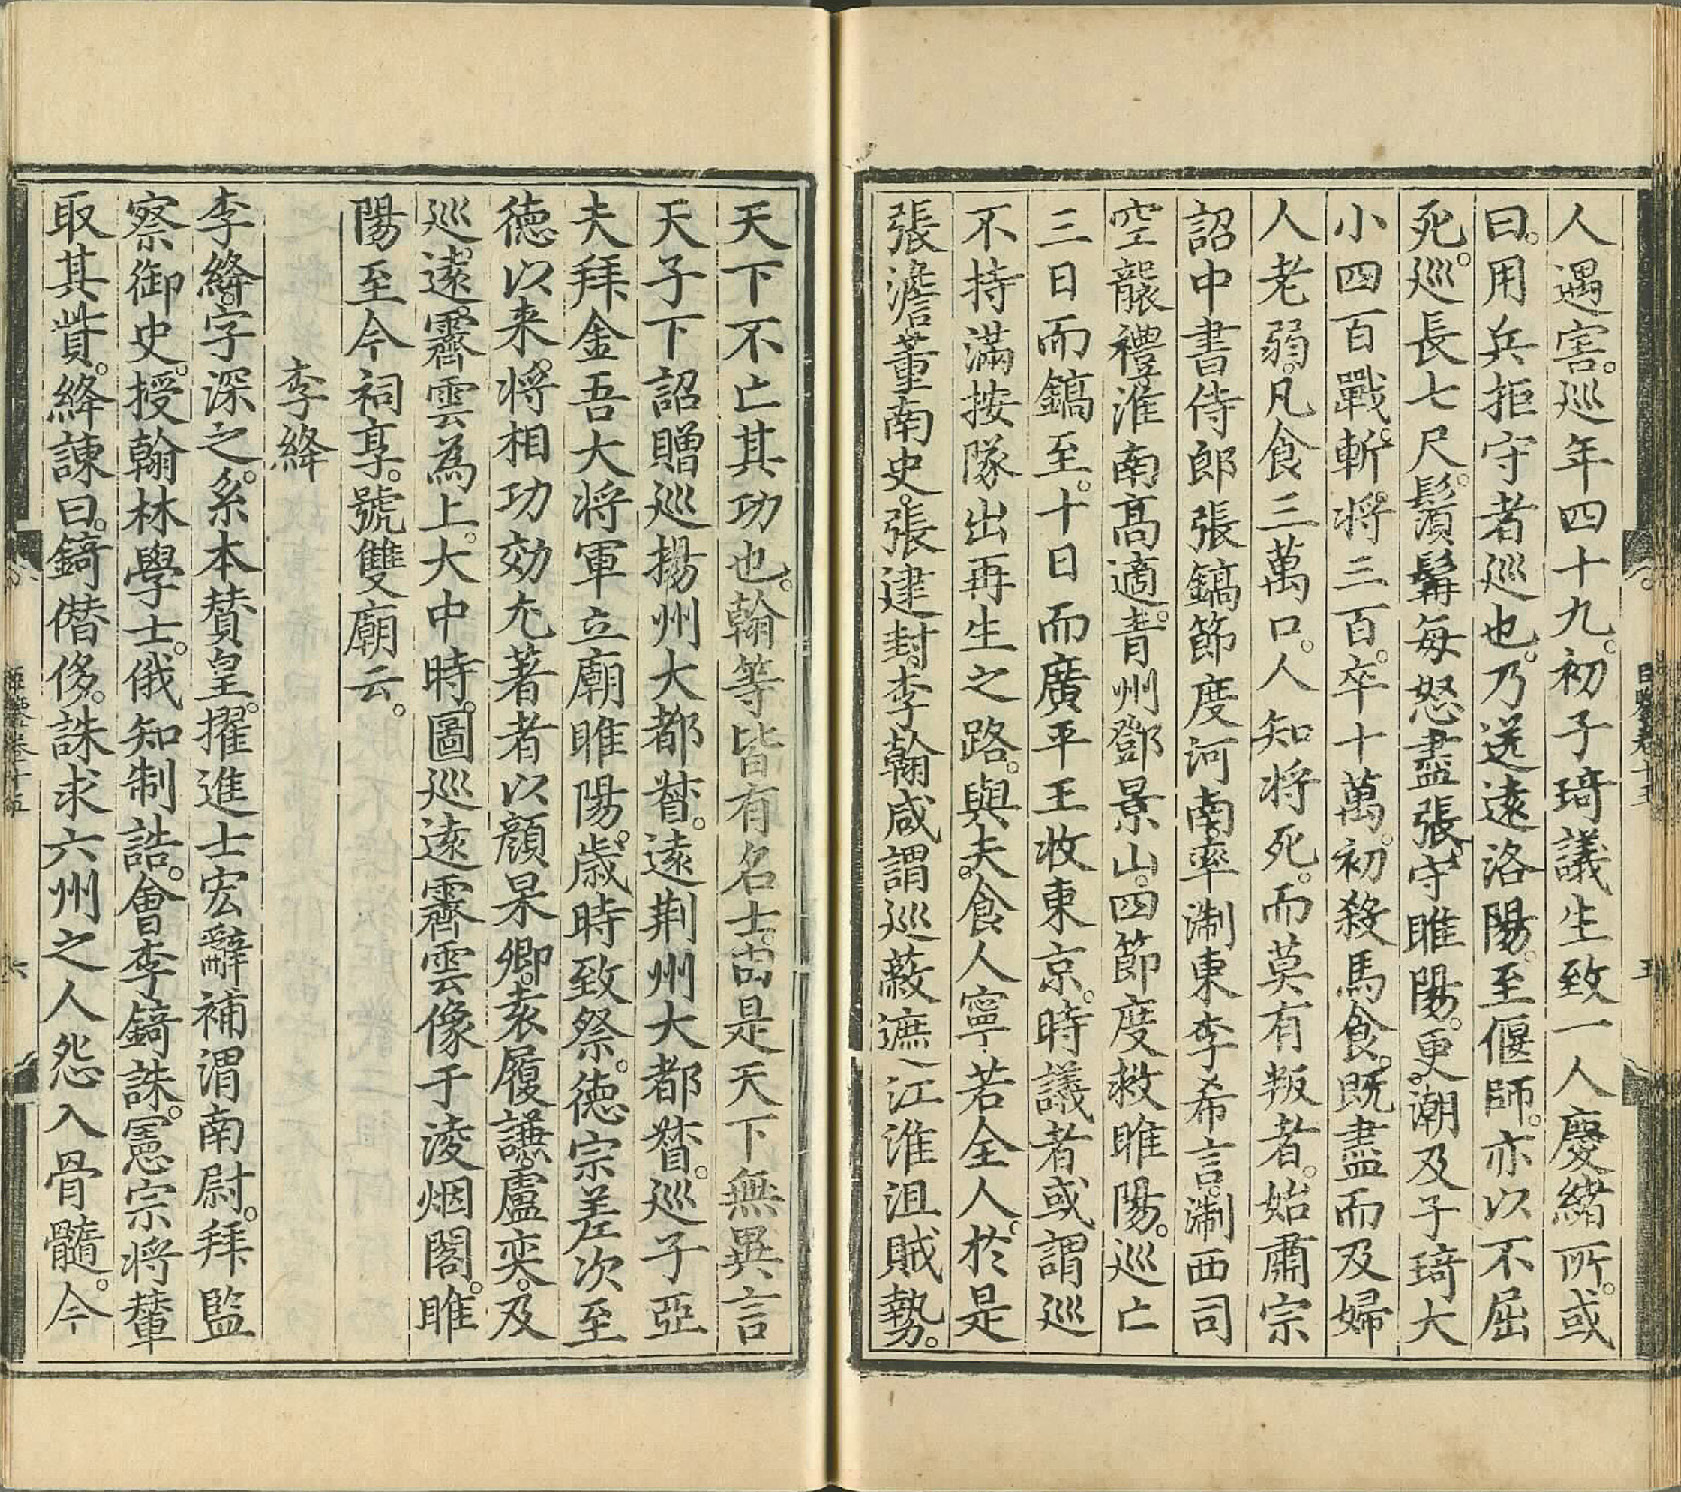 人遇害。巡年四十九。初子琦議生致一人慶緒所。或
曰。用兵拒守者巡也。乃送遠洛陽。至偃師。亦以不屈
死。巡長七尺。鬚髯每怒盡張。守睢陽。更潮及子琦大
小四百戰。斬將三百。卒十萬。初殺馬食。既盡而及婦
人老弱。凡食三萬口。人知将死。而莫有叛者。始肅宗
詔中書侍郎張鎬節度河南。率淛東李希言。淛西司
空襲禮。淮南高適。青州鄧景山。四節度救睢陽。巡亡
三日而鎬至。十日而廣平王收東京。時議者或謂巡
不持滿按隊出再生之路。與夫。食人寧若全人。於是
張澹董南史。張建封李翰咸謂巡蔽遮江淮沮賊勢。
天下不亡其功也。翰等皆有名士。由是天下無異言
天子下詔贈巡揚州大都督。遠荆州大都督。巡子亞
夫拜金吾大将軍立廟睢陽。歲時致祭。德宗差次至
德以来。将相功効尤著者以顏杲卿。袁履謙。盧奕。及
巡。遠。霽雲為上。大中時。圖巡遠霽雲像于淩烟閣。睢
陽至今祠享。號雙廟云。
李絳
李絳。字深之。系本賛皇。擢進士宏辭補渭南尉。拜監
察御史。授翰林學士。俄知制誥。會李錡誅。憲宗將輦
取其貲。絳諫曰。錡僭侈。誅求六州之人怨入骨髓。今